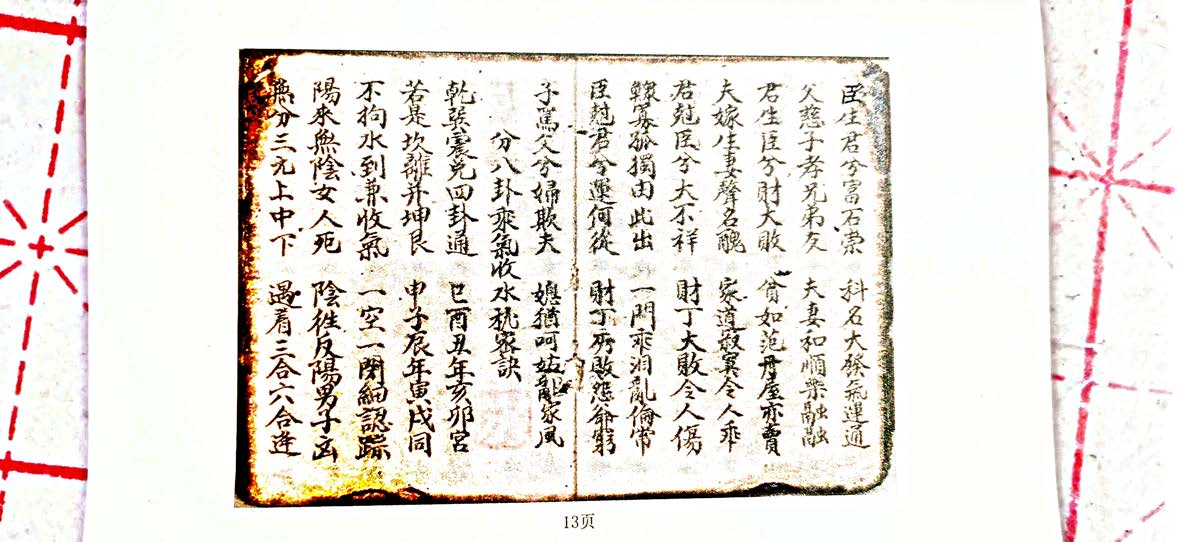 臣生君兮富石崇　科名大發氣運通
父慈子孝兄弟友　夫妻和順樂融融
君生臣兮財大敗　貧如范丹屋亦賣
夫嫁生妻聲名醜　家道寂寞令人乖
君尅臣兮大不祥　財丁大敗令人傷
鰥寡孤獨由此出　一門乖泪亂倫常
臣尅君兮運何從　財丁秀敗怨爺窮
子罵父兮婦欺夫　媳犹呵姑亂家風
分八卦乘氣收水秘密訣
乾巽震兌四卦通　巳酉丑年亥卯宮
若是坎離并坤艮　申子辰年寅戌同
不拘水到兼收氣　一空一閉細認踪
陽來無陰女人死　陰往反陽男子凶
無分三元上中下　遇着三合六合逢
13页